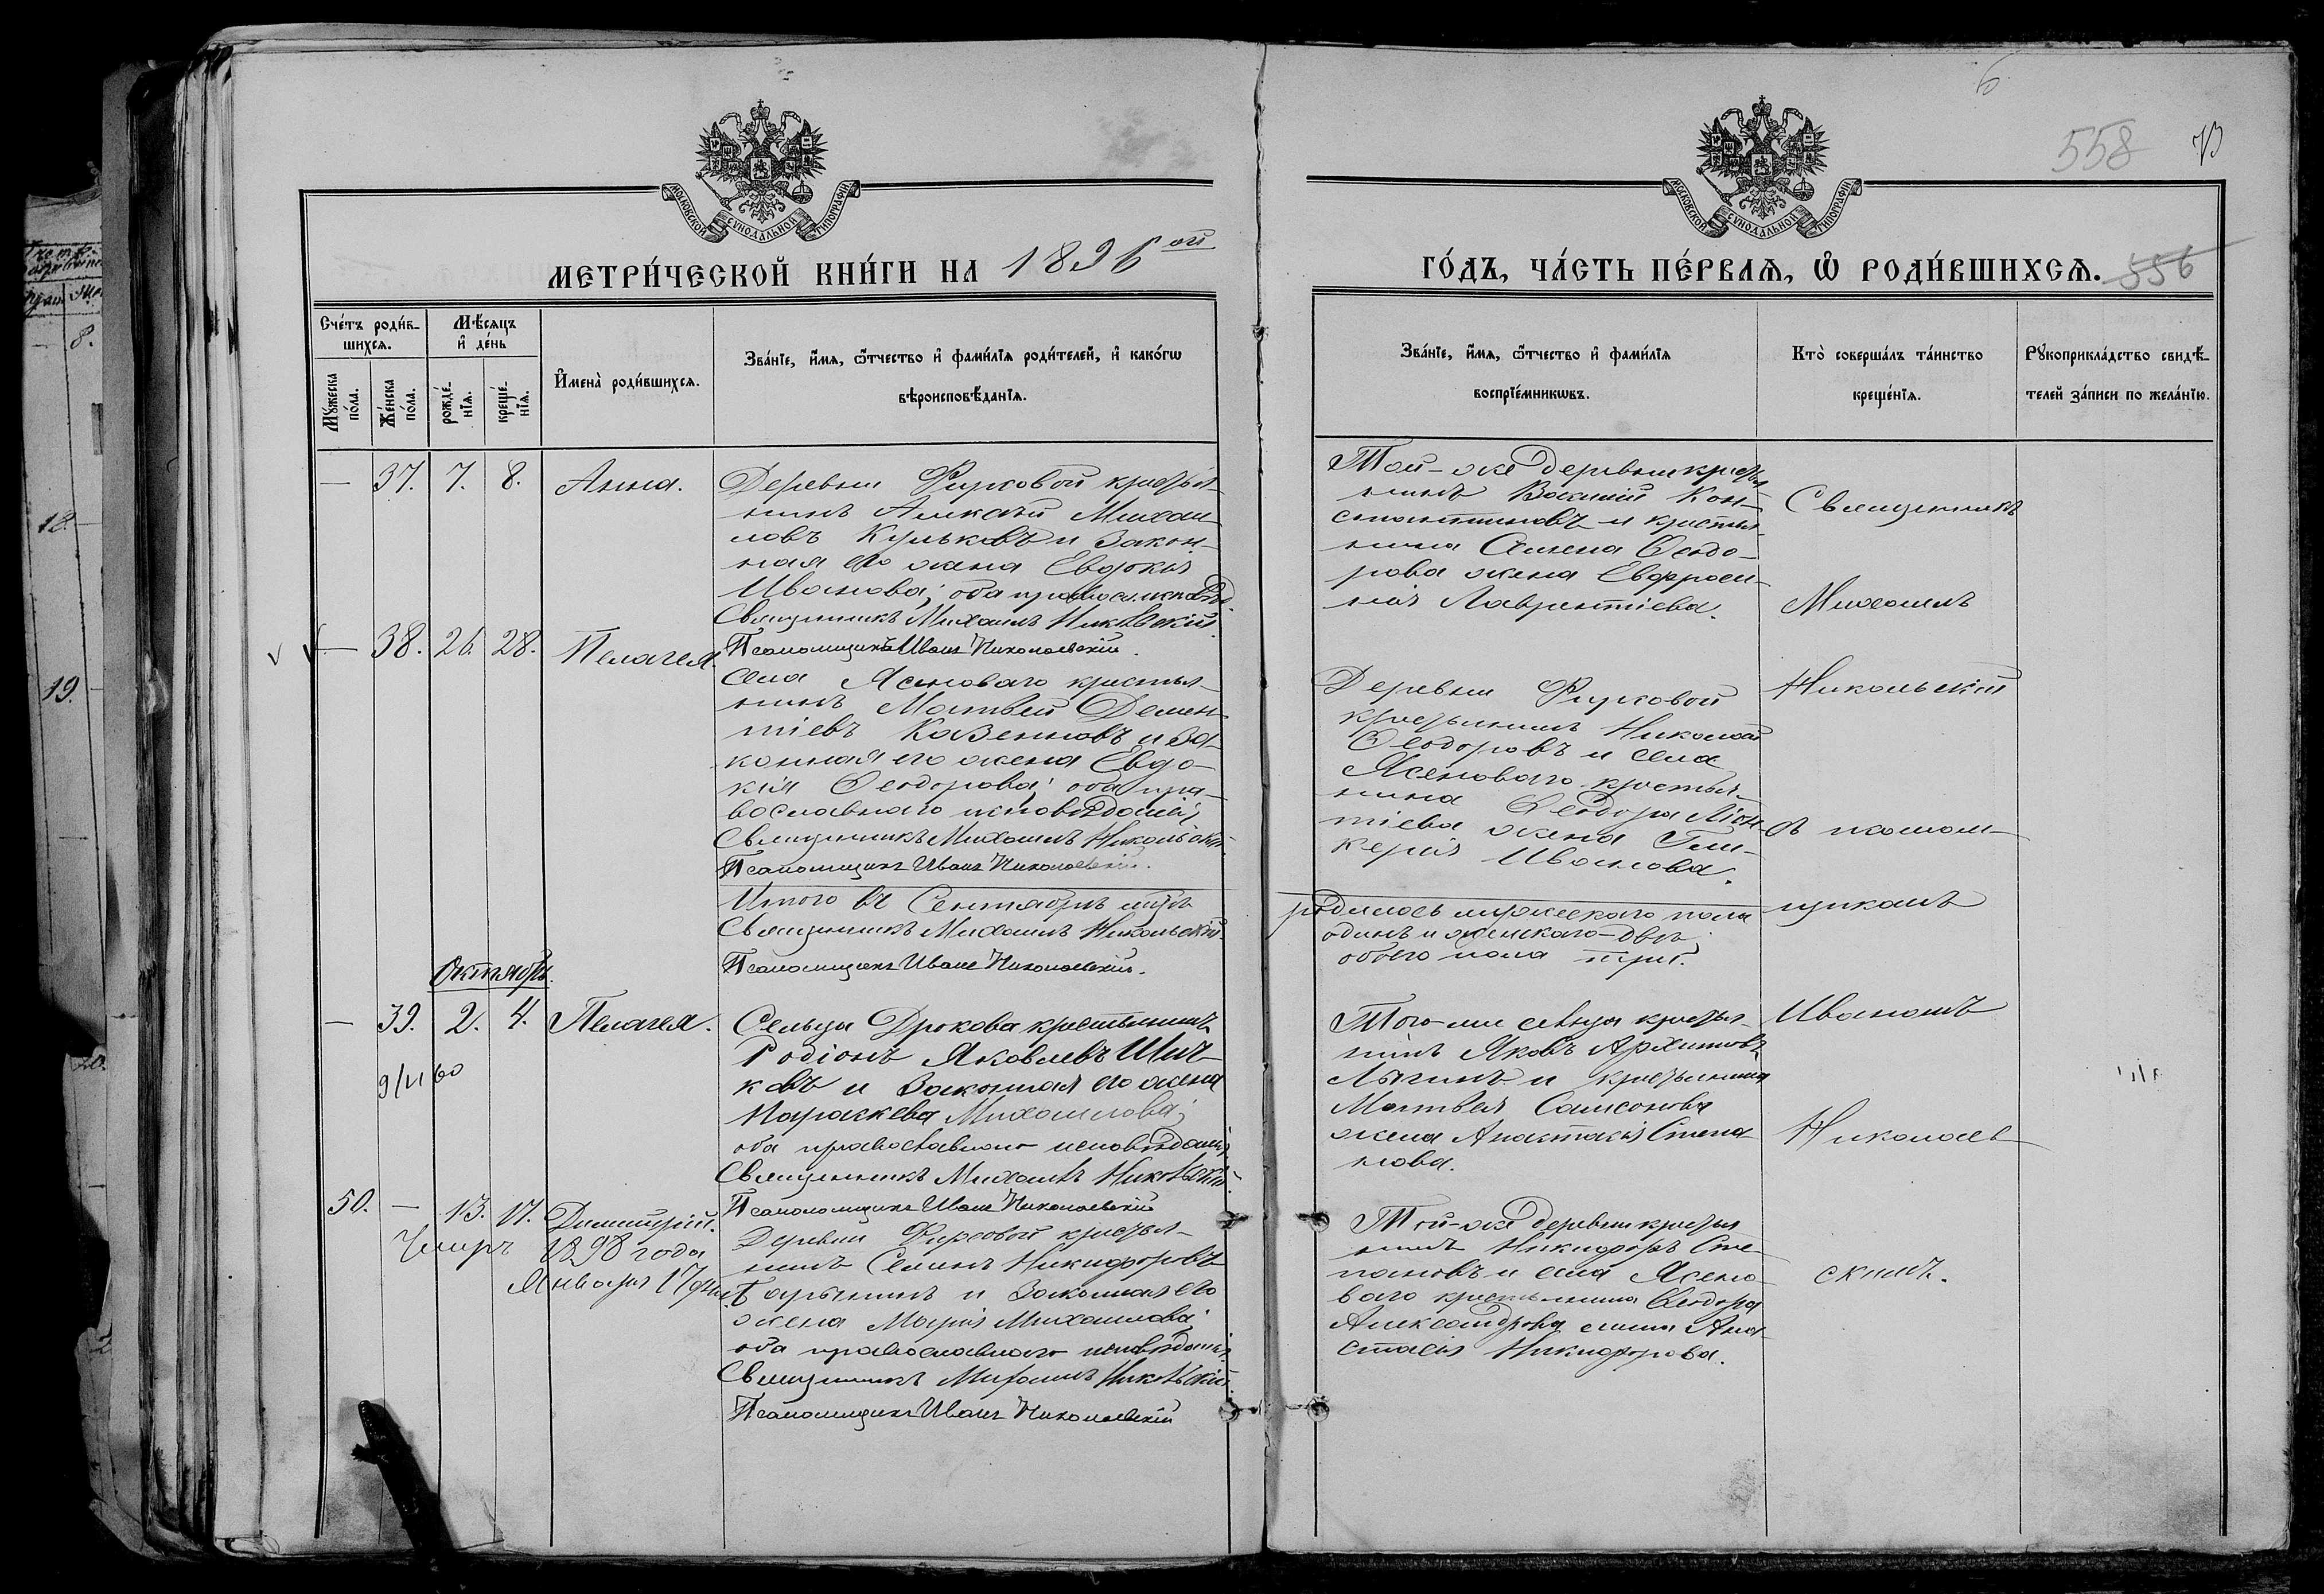 6
558
МОСКОВСКОЙ СѴНОДАЛЬНОЙ ТИПОГРАФІИ
МОСКОВСКОЙ СѴНОДАЛЬНОЙ ТИПОГРАФІИ
МЕТРИ́ЧЕСКОЙ КНИ́ГИ НА 1896ой
ГО́ДЪ, ЧА́СТЬ ПЕ́РВАЯ, Ѡ РОДИ́ВШИХСЯ. 556
Сче́тъ роди́в-
шихся.
Мꙋ́жеска по́ла.
Же́нска по́ла.
Мѣ́сяцъ
и҆ де́нь
рожде́-
нїя.
креще́-
нїя.
И҆мена̀ роди́вшихся.
Зва́нїе, и҆́мя, ѻ҆́тчество и҆ фами́лїя роди́телей, и҆ како́гѡ
вѣроисповѣ́данїя.
Зва́нїе, и҆́мя, ѻ҆́тчество и҆ фами́лїя
воспрїе́мникѡвъ.
Кто̀ соверша́лъ та́инство
креще́нїя.
Рꙋкоприкла́дство свидѣ́-
телей за́писи по жела́нїю.
— 37. 7. 8. Анна.
Деревни Фурсовой крестья-
нинъ Алексѣй Михаи-
ловъ Кульковъ и закон-
ная его жена Евдокія
Иванова; оба православн. исповѣд.
Священникъ Михаилъ Никольскій
Псаломщикъ Иванъ Николаевскій.
Той-же деревни крестья-
нинъ Василій Кон-
стантиновъ и крестья-
нина Семена Ѳеодо-
рова жена Евфроси-
нія Лаврентіева.
— 38. 26. 28. Пелагея.
Села Ясеноваго крестья-
нинъ Матвѣй Демен-
тіевъ Казенновъ и за-
конная его жена Евдо-
кія Ѳеодорова; оба пра-
вославнаго исповѣданія;
Священникъ Михаилъ Никольскій.
Псаломщикъ Иванъ Николаевскій.
Деревни Фурсовой
крестьянинъ Николай
Ѳеодоровъ и села
Ясеноваго крестья-
нина Ѳеодора Леон-
тіева жена Гли-
керія Иванова.
Итого въ Сентябрѣ м-цѣ
Священникъ Михаилъ Никольскій.
Псаломщикъ Иванъ Николаевскій.
родилось мужескаго пола
одинъ и женскаго двѣ,
обоего пола три.
Октябрь.
— 39. 2. 4. Пелагея.
Сельца Дрокова крестьянинъ
Родіонъ Яковлевъ
и законная его жена
Параскева Михаилова;
оба православнаго исповѣданія
Священникъ Михаилъ Никольскій.
Псаломщикъ Иванъ Николаевскій
Того-же сельца крестья-
нинъ Яковъ Архиповъ
и крестьянина
Матвѣя Самсонова
жена Анастасія Степа-
нова.
50. — 13. 17. Димитрій.
Умеръ 1898 года
Января 17 дня
Деревни Фурсовой крестья-
нинъ Семенъ Никифоровъ
и законная его
жена Марія Михаилова;
оба православнаго исповѣданія
Священникъ Михаилъ Никольскій.
Псаломщикъ Иванъ Николаевскій
Той-же деревни крестья-
нинъ Никифоръ Сте-
пановъ и села Ясено-
ваго крестьянина Ѳеодора
Александрова жена Ана-
стасія Никифорова.
Священникъ
Михаилъ
Никольскій
съ псалом-
щикомъ
Иваномъ
Николаев-
скимъ.